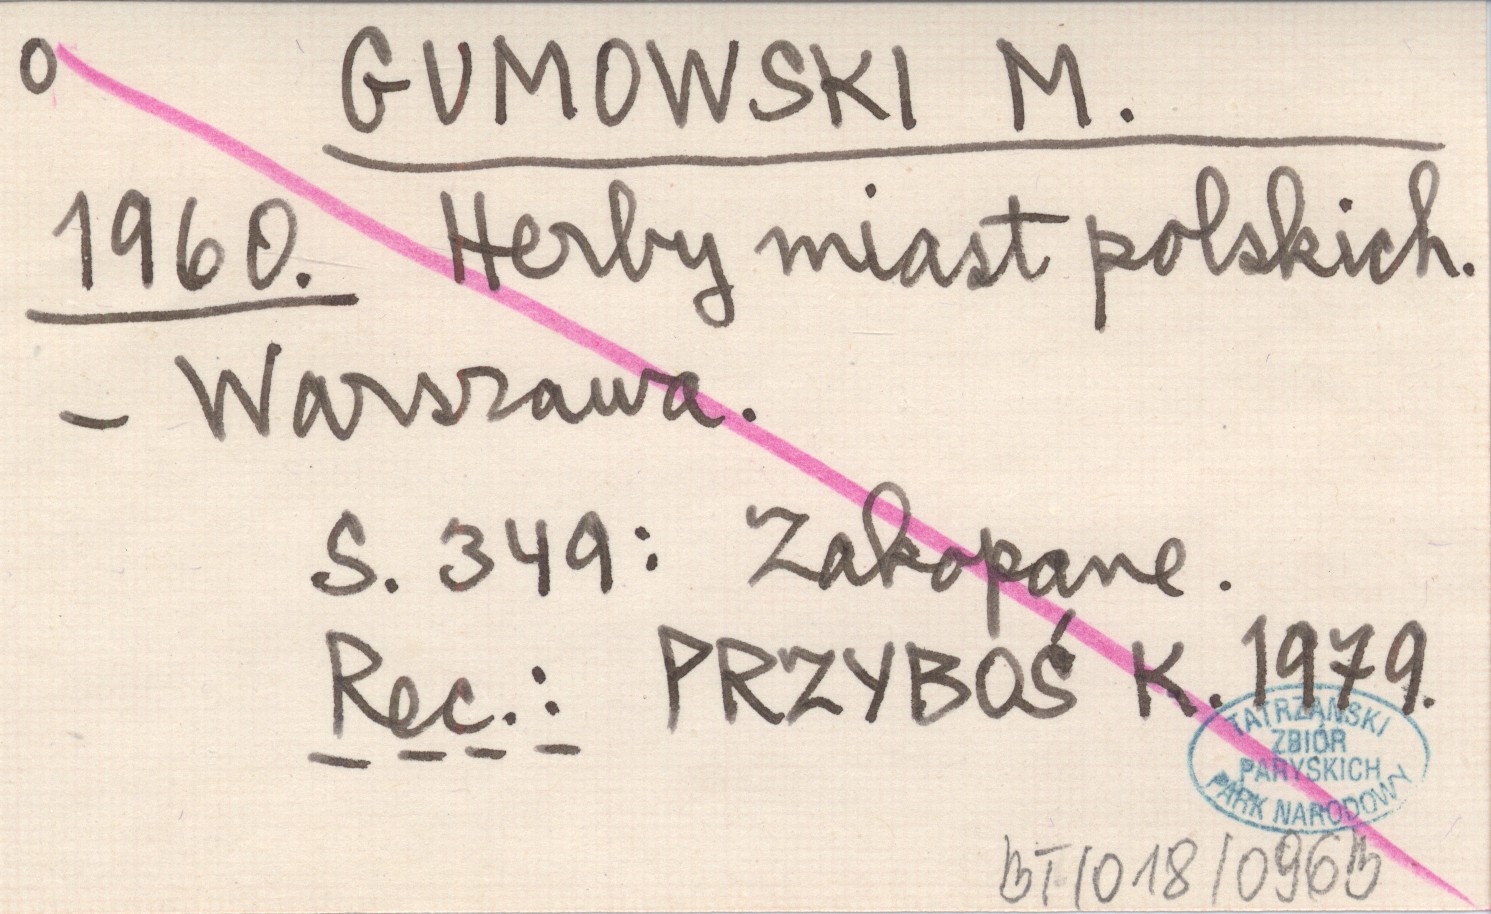 O GUMOWSKI M.
1960. Herby miast polskich.
– Warszawa.
S. 349: Zakopane.
Rec.: PRZYBOŚ K. 1979.
TATRZAŃSKI
ZBIÓR
PARYSKICH
PARK NARODOWY
BT/018/096b